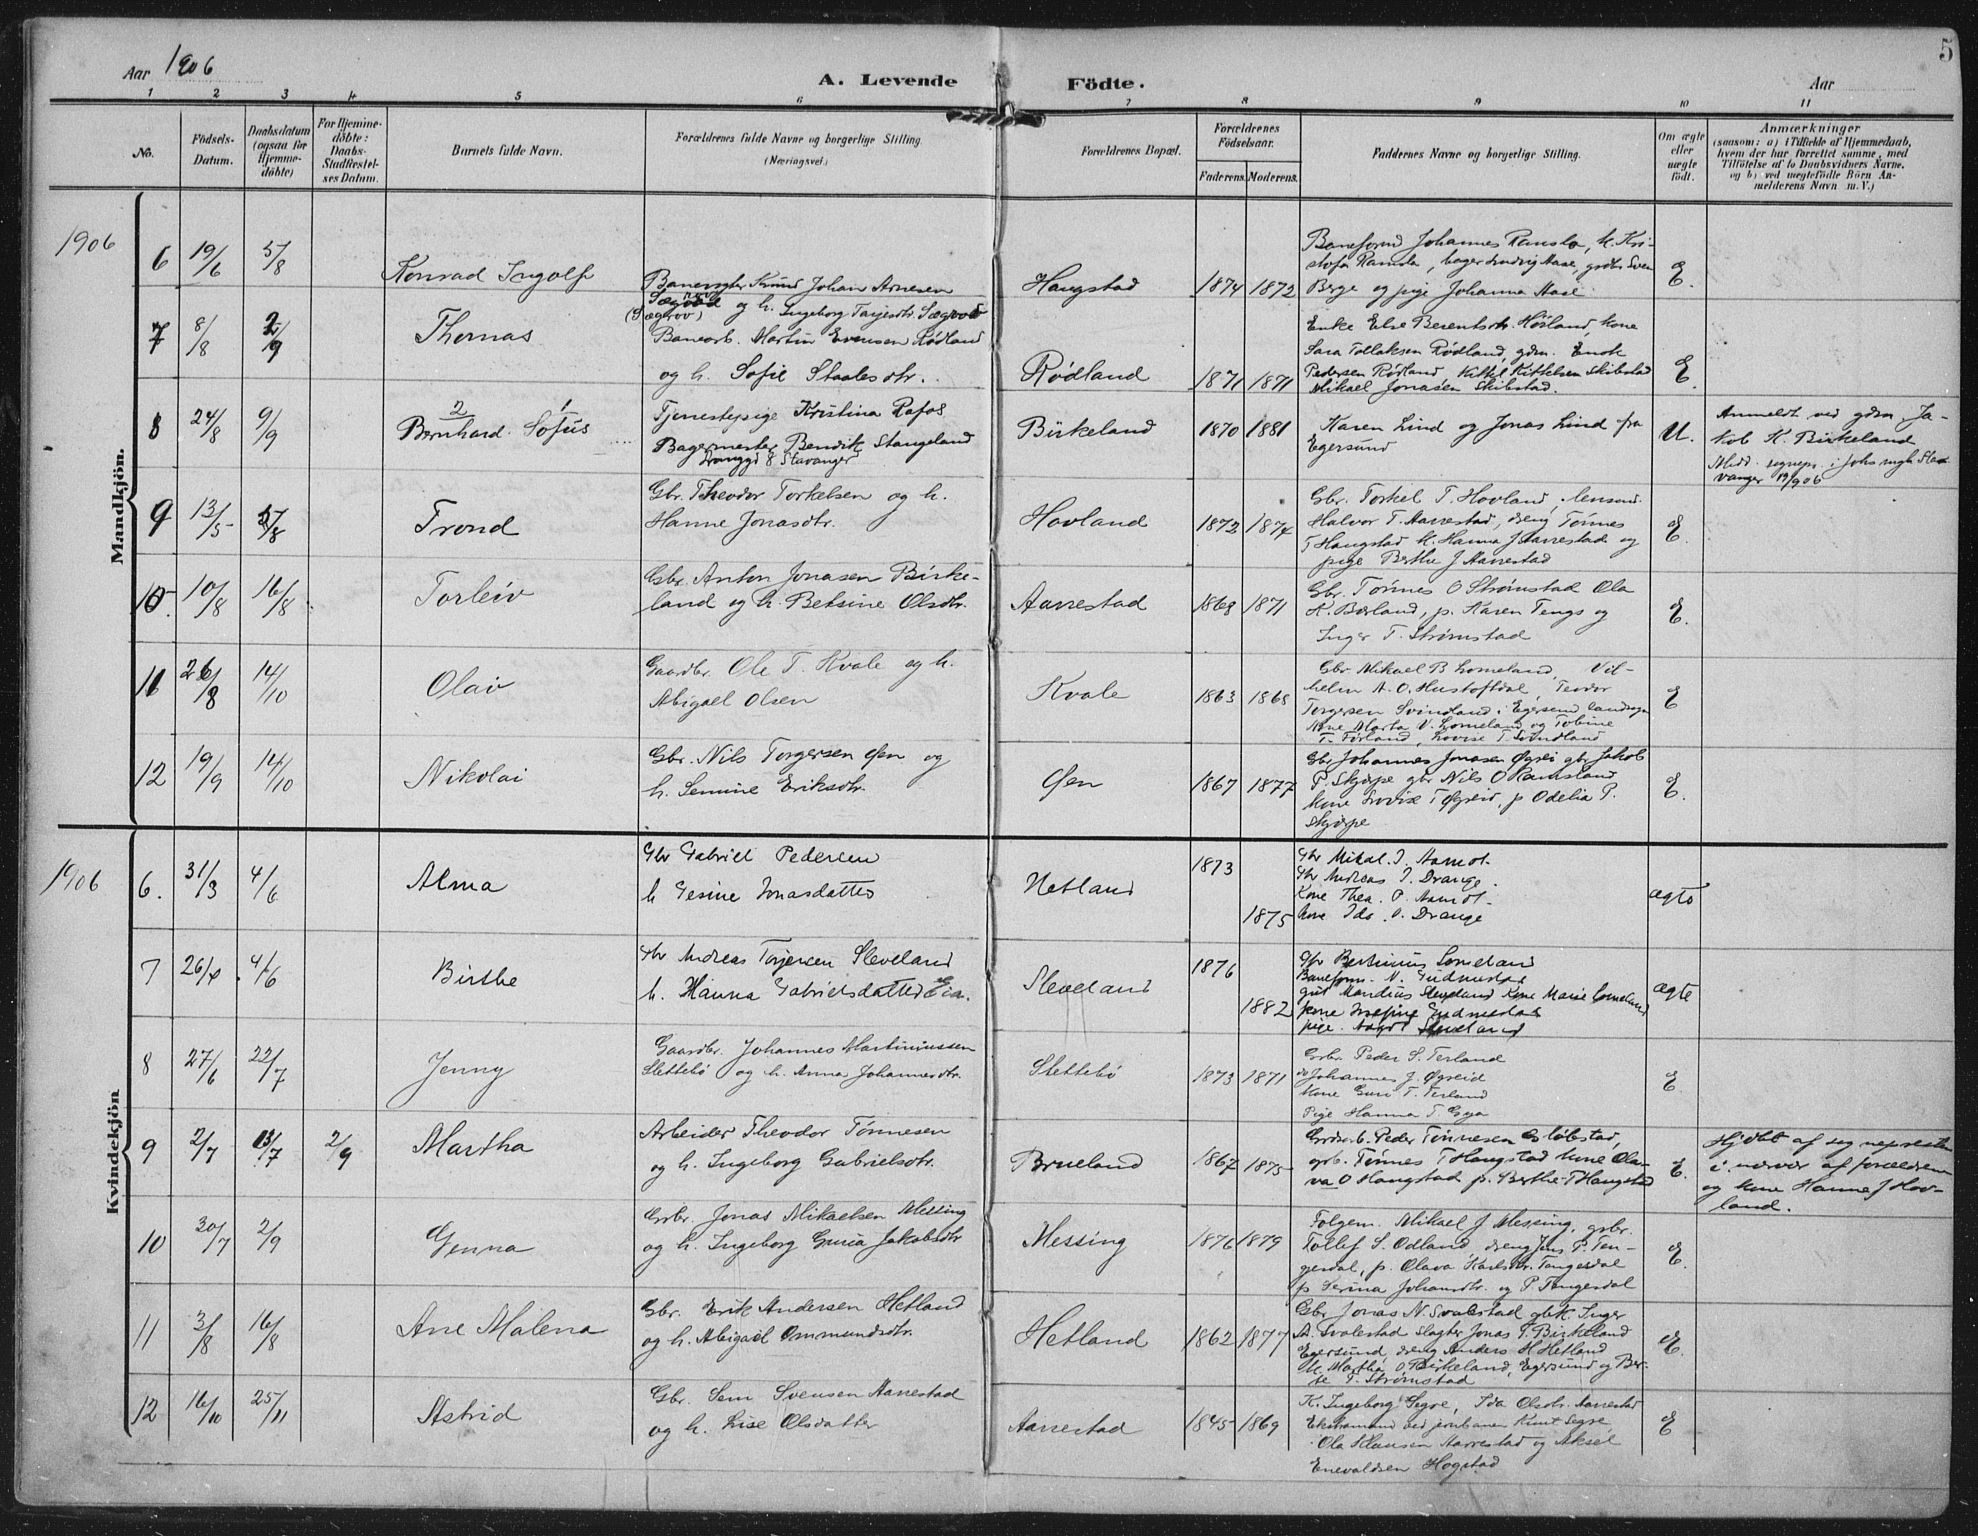 5
Aar 1906
A. Levende Födte.
Aar
1 2 3 4 5 6 7 8 9 10 11
No.
Födsels-
Datum.
Daabsdatum
(ogsaa for
Hjemme-
döbte)
For Hjemme-
döbte:
Daabs-
Stadfæstel-
ses Datum.
Barnets fulde Navn.
Forældrenes fulde Navne og borgerlige Stilling.
(Næringsvei.)
Forældrenes Bopæl.
Forældrenes
Födselsaar.
Faderens. Moderens.
Faddernes Navne og borgerlige Stilling.
Om ægte
eller
uægte
födt.
Anmærkninger
(saasom: a) i Tilfælde af Hjemmedaab,
hvem der har forrettet samme, med
Tilföielse af to Daabsvidners Navne,
og b) ved uægtefödte Börn An-
melderens Navn m. V.)
Mandkjön.
1906
6 19/6 5/8
Konrad Ingolf
Banevogter Knud Johan Arnesen
(Sægrov) og h. Ingeborg Tarjesdtr. Sægrov
Haugstad
1874 1872
Baneformd Johannes Ramsla, k. Kri-
stofa Ramsla, bager Ludvig Aase, gdbr Sven
Berge og pige Johanna Aase
E.
7 8/8 2/9
Thomas
Banearb. Martin Evensen Rødland
og h. Sofie Staalesdtr.
Rødland
1871 1871
Enke Else Berentsdtr. Hørland, kone
Sara Tollaksen Rødland, gdm. Enok
Pedersen Rødland Kittel Kittelsen Skibstad
Mikael Jonasen Skibstad.
E.
8 24/8 9/9
2 1
Bernhard Sofus
Tjenestepige Kristina Rafos
Bagermester Bendik Stangeland
Stavanger
Birkeland
1870 1881
Karen Lind og Jonas Lind fra
Egersund
U.
Anmeldt ved gdm. Ja-
kob K. Birkeland
Medd. sognepr. i Johs mgh Sta-
vanger 19/9 06
9 13/5 5/8
Trond
Gbr. Theodor Torkelsen og h.
Hanne Jonasdtr.
Hovland
1872 1874
Gbr. Torkel T. Hovland, lensmd
Halvor T. Aarrestad, dreng Tønnes
T Haugstad k. Hanna J Aarrestad og
pige Berthe J Aarrestad
E.
10. 10/8 16/8
Torleiv
Gbr. Anton Jonasen Birke-
land og h. Betsine Olsdtr.
Aarrestad
1868 1871
Gbr. Tønnes O Strømstad Ola
K. Børland, p. Karen Tengs og
Inger T. Strømstad
E.
11 26/8 14/10
Olav
Gaardbr. Ole T. Kvale og h.
Abigael Olsen
Kvale
1863 1868
Gbr. Mikael B Lomeland, Vil-
helm A. O. Hustoftdal, Teodor
Torgersen Svindland i Egersund landsogn
Kone Marta V. Lomeland og Tobine
T. Førland, Lovise T Svindland
E
12 19/9 14/10
Nikolai
Gbr. Nils Torgersen Øen og
h. Semine Eriksdtr.
Øen
1867 1877
Gbr Johannes Jonasen Øgrei gbr. Jakob
P. Skjærpe gbr Nils O Ramsland
kone Lovise T Øgreid, p Odelia P.
Skjærpe
E.
Kvindekjön
1906
6. 31/3 4/6
Alma
Gbr Gabriel Pedersen
h Gesine Jonasdatter
Hetland
1873
1875
Gbr Mikal. J. Aamot.
Gbr Andreas J. Drange.
Kone Thea. P. Aamot.
Kone Ida. O. Drange
ægte
7 26/4 4/6
Birthe
Gbr Andreas Torjersen Sleveland
h. Hanna Gabrielsdatter Eia.
Sleveland
1876
1882
Gbr Bertinius Lomeland
Baneform. N. Gudmestad
gut Mandius Sleveland Kone Marie Lomeland
kone Josefine Gudmestad
pige. Sleveland
ægte
8 27/6 22/7
Jenny
Gaardbr. Johannes Martiniussen
Slettebö og h. Anna Johannesdtr.
Slettebö
1873 1871
Grbr. Peder S. Terland
do Johannes J. Øgreid
Kone Guri T. Terland
Pige Hanna T Gya
E.
9 2/7 13/7 2/9
Martha
Arbeider Theodor Tönnesen
og h. Ingeborg Gabrielsdtr.
Brueland
1867 1875
Grdarb. Peder Tønnesen Gløbstad,
grb. Tønnes T Haugstad kone Ola-
va O Haugstad p. Berthe T Haugstad
E.
Hjdbt af sognepresten
i nærvær af forældrene
og kone Hanne J Hov-
land.
10 30/7 2/9
Genna
Grbr. Jonas Mikaelsen Messing
og h. Ingeborg Guria Jakobsdtr
Messing
1876 1879
Folgem. Mikael J Messing, grbr.
Tollef S. Odland, dreng Jens P. Ten-
gesdal, p. Olava Karlsdtr. Tengesdal
p Serina Johansdtr. og P. Tengesdal
E.
11 3/8 16/8
Ane Malena
Gbr. Erik Andersen Hetland
og h. Abigael Ommundsdtr.
Hetland
1862 1877
Gbr Jonas N. Svalestad gbk. Inger
A. Svalestad slagter Jonas T. Birkeland
Egersund, dreng Anders H Hetland
k. Martha O Birkeland, Egersund og Ber-
te T. Strømstad
E.
12 16/10 25/11
Astrid
Gbr. Sem Svensen Aarrestad
og h. Lise Olsdatter
Aarrestad
1845 1869
K. Ingeborg Segve, Ida Olsdtr. Aarrestad
Ekstramand ved jernbanen Knut Segve
Ola Klausen Aarrestad og Aksel
Enevaldsen Hogstad
E